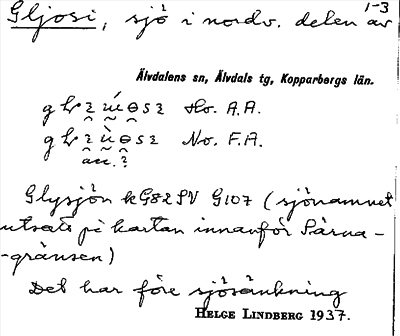 Gljosi, sjö i nordv. delen av
1-3
Älvdalens sn, Älvdals tg, Kopparbergs län.
Ho. A.A.
No. F.A.
acc. ?
Glysjön kG82SV G107 (sjönamnet
utsatt på kartan innanför Särna-
-gränsen)
Det har före sjösänkning
HELGE LINDBERG 1937.